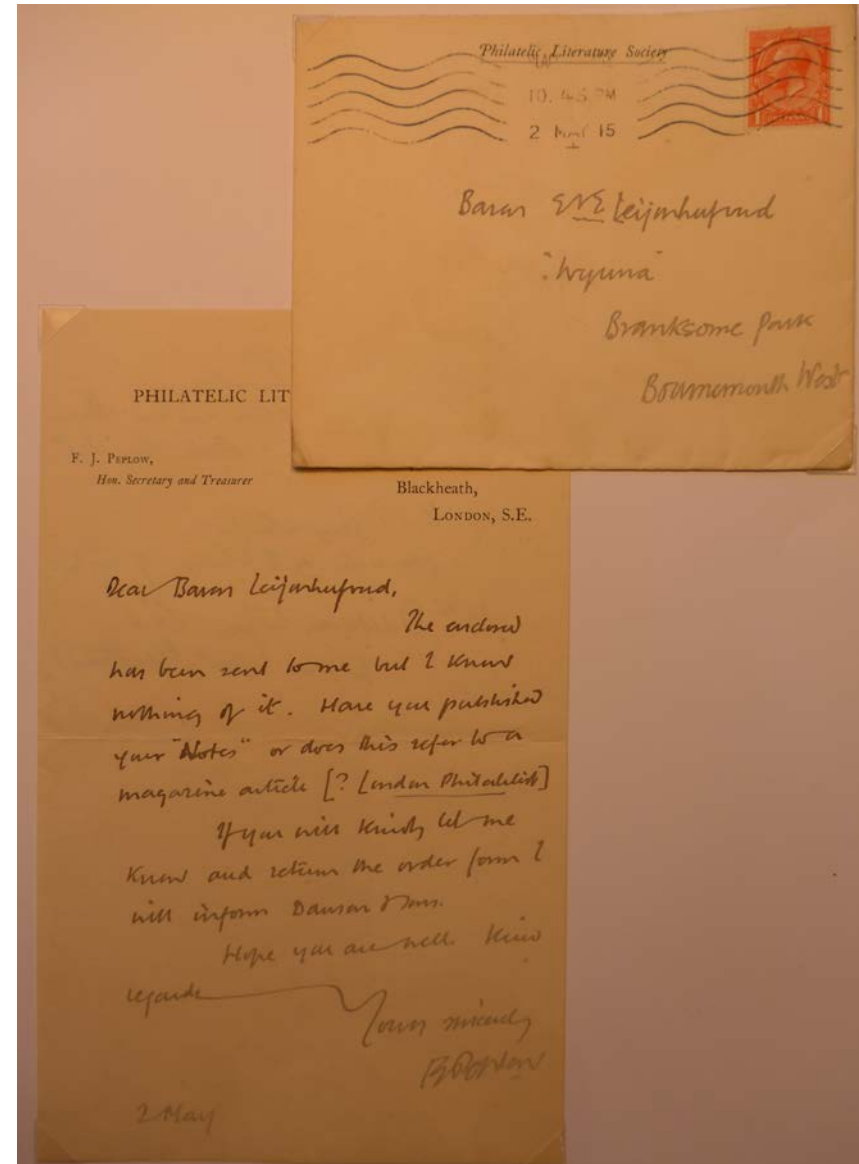 Philatelic Literature Society
10.45 PM
2 MAY 15
Baron Leijonhufvud
"Wyuna"
Branksome Park
Bournemouth West
PHILATELIC LIT
F. J. PEPLOW,
Hon. Secretary and Treasurer
Blackheath,
LONDON, S.E.
Dear Baron Leijonhufvud,
The enclosed
has been sent to me but I know
nothing of it. Have you published
your "Notes" or does this refer to a
magazine article [? London Philatelist]
If you will kindly let me
know and return the order form I
will inform Dawson & Sons.
Hope you are well. Kind
regards
Yours sincerely
FJPeplow
2 May